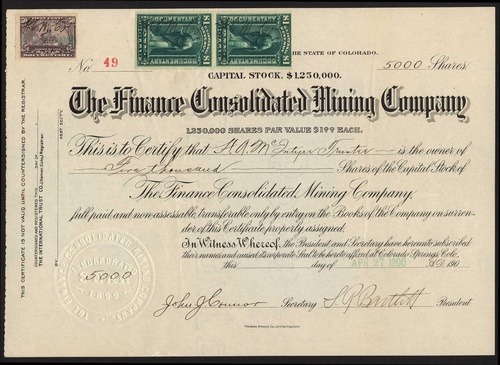 THE STATE OF COLORADO.
No 49
5000 Shares
$1 DOCUMENTARY $1
DOCUMENTARY
CAPITAL STOCK, $1,250,000.
The Finance Consolidated Mining Company
1,250,000 SHARES PAR VALUE $1.00 EACH.
This is to Certify that H. A. McIntyre Trustee is the owner of
Five thousand Shares of the Capital Stock of
The Finance Consolidated Mining Company,
full paid and non-assessable, transferable only by entry on the Books of the Company on surren-
der of this Certificate properly assigned.
In Witness Whereof, the President and Secretary have hereunto subscribed
their names and caused its corporate Seal to be hereto affixed at Colorado Springs, Colo.
this day of APR 27 1900 A.D. 190
John J Connor Secretary S. P. Bartlett President
5000
THE FINANCE CONSOLIDATED MINING COMPANY
INCORPORATED
1899
THIS CERTIFICATE IS NOT VALID UNTIL COUNTERSIGNED BY THE REGISTRAR.
COUNTERSIGNED AND REGISTERED THIS
DAY OF
THE INTERNATIONAL TRUST CO. (Denver, Colo.) Registrar.
ASST. SECTY.